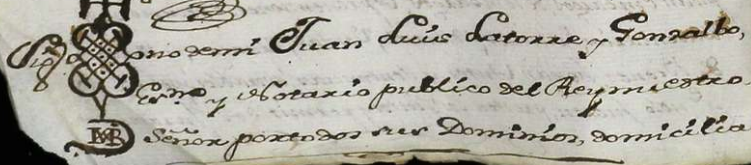 Sig no de mi Juan Luis Latorre y Gonzalbo,
Es.no y Notario publico del Rey nuestro
Señor por todos sus Dominios, domicilia